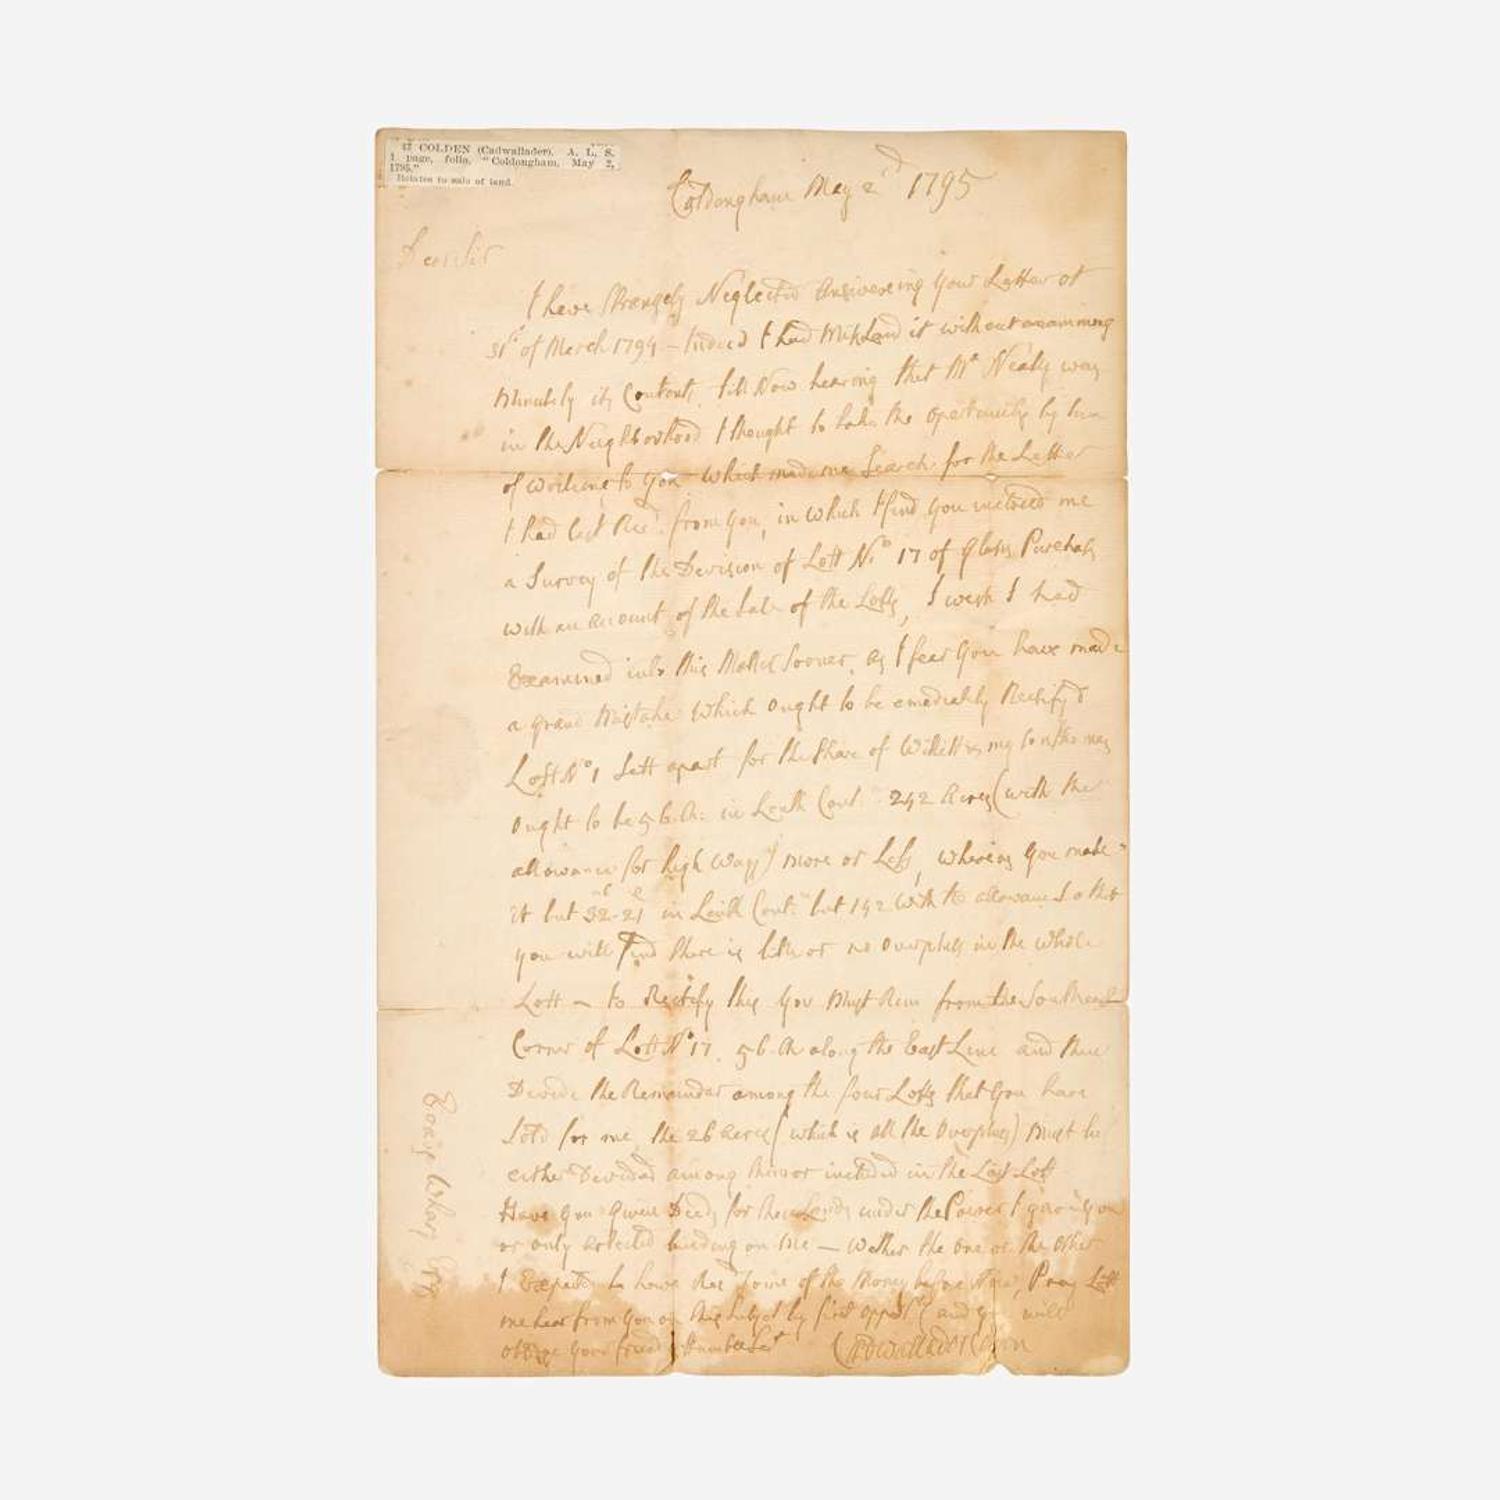 47 COLDEN (Cadwallader). A. L. S.
1 page, folio, "Coldongham, May 2,
1795."
Relates to sale of land.
Coldongham May 2d 1795
Dear Sir
I have Strangely Neglected Answereing your Letter of
31st of March 1794 - Indeed I had Mislaid it without examining
Minutely its Contents, till Now hearing that Mr Nealy was
in the Neighborhood I thought to take the opertunity by him
of writeing to you which made me Search for the Letter
I had last Recd. from you, in which I find you inclosed me
a Survey of the Devision of Lott No 17 of Glans Purchas
with an account of the Sale of the Lotts, I wish I had
Examined into this Matter Sooner, as I fear you have made
a grand Mistake which ought to be emediately Rectifyd
Lott No 1 Sett apart for the Share of my
ought to be 56. Ch: in Lenth Cont. 242 Acres (with the
allowance for high ways) more or Less, whereas you make
it but 32-21 in Lenth Cont. but 142 with the allowance So that
you will find there is litle or no Overpluss in the whole
Lott - to Rectify this you Must Run from the Southend
Corner of Lott No 17. 56. Ch along the East Line and then
Devide the Remainder among the four Lotts that you have
Sold for me, the 26 acres (which is all the Overpluss) must be
either Devided among them or included in the Last Lott
Have you given Deeds for these Lands under the Power I gave you
or only binding on me - Wether the one or the other
I Expected to have Some of the Money before Now, Pray Lett
me hear from you on this Subject by first and you will
oblige your friend & Humble Set Cadwallader Colden